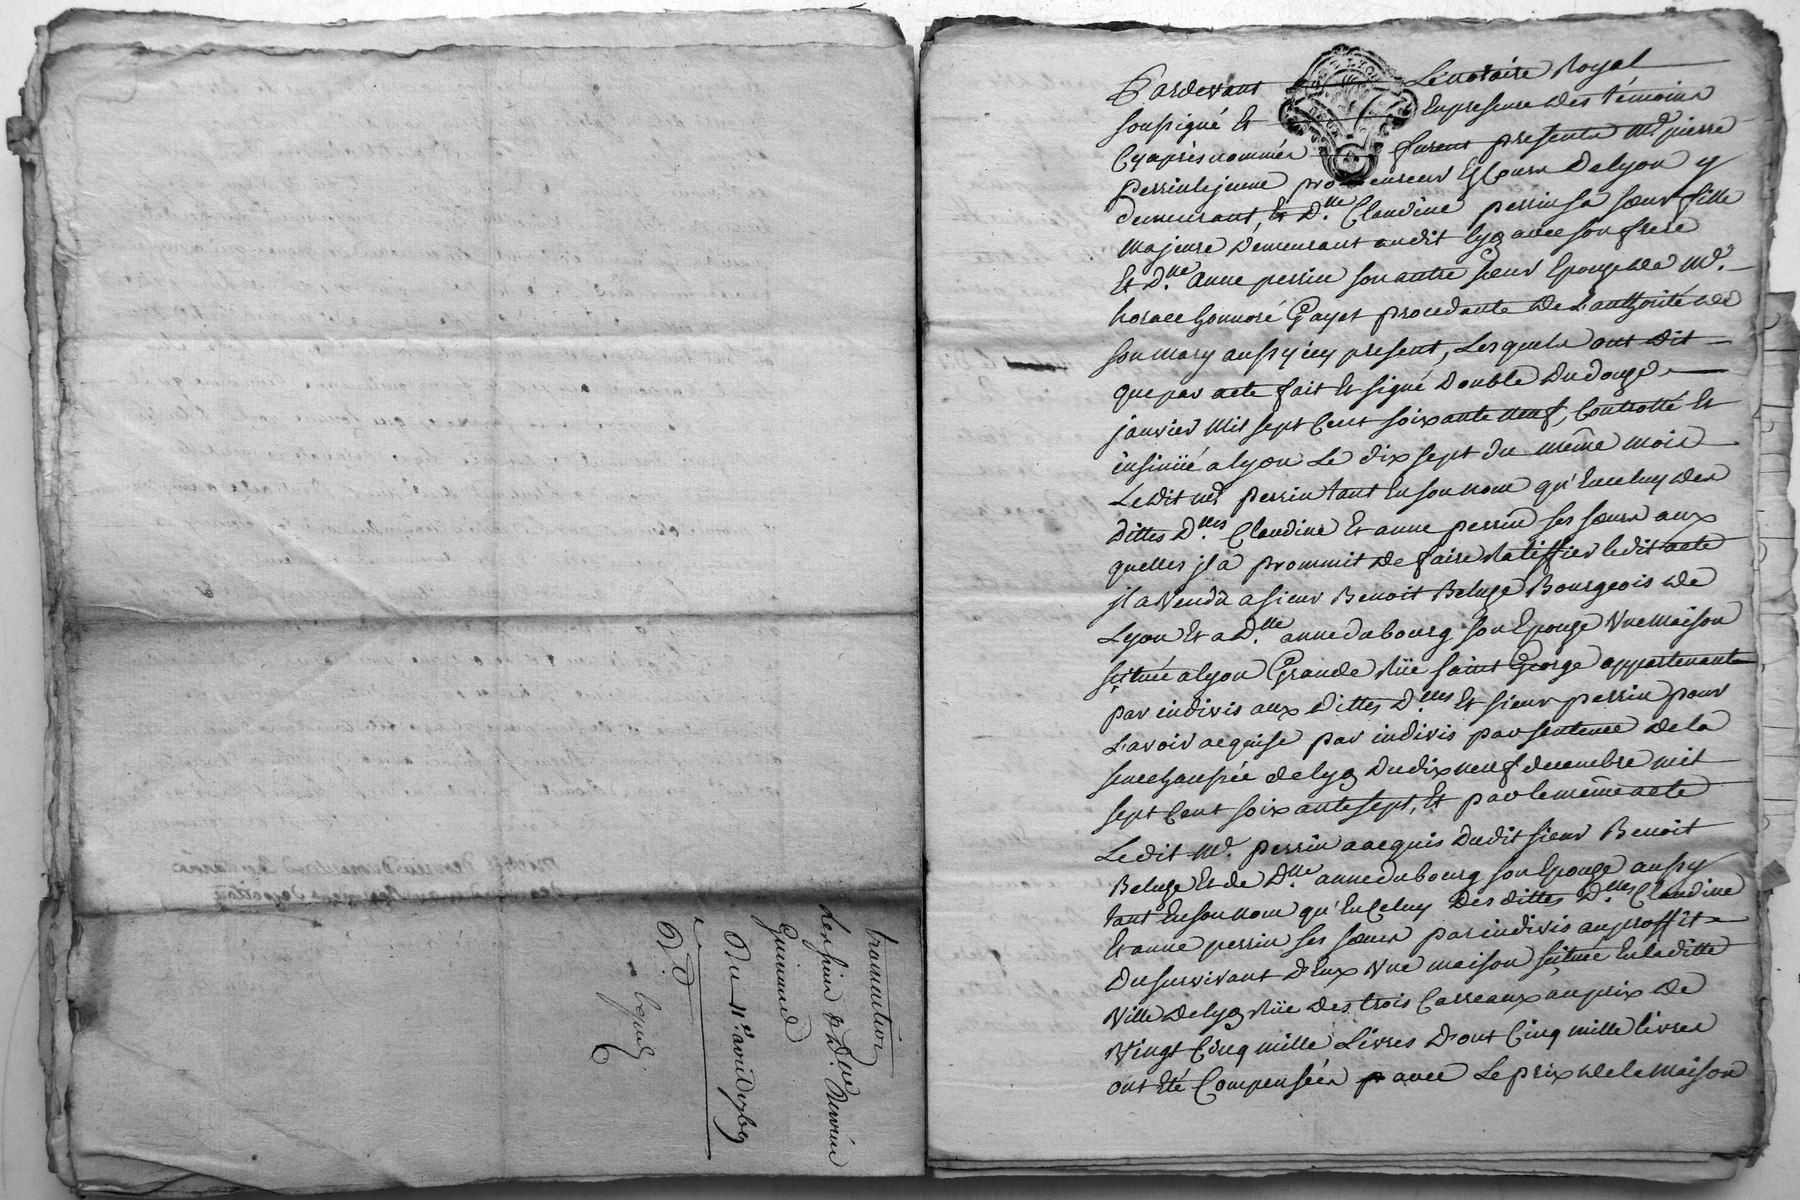 transaction
Du 11e. avril 1769
Pardevant Le notaire Royal
soussigné Et En presence des témoins
Cy après nommés furent presents Mr. pierre
Perrin le jeune procureur Es Cours De Lyon y
demeurant, Et D.lle Claudine perrin sa soeur fille
Majeure Demeurant audit lyon avec son frere
Et D.lle anne perrin son autre soeur Epouze de Mr.
horace honnoré Gayet procedante de L'authorité de
son mary aussy icy present, Lesquels ont dit
que par acte fait Et signé Double Du douze
janvier mil sept Cent soixante neuf, Controllé Et
insinüé a lyon Le dix sept du même mois
Ledit mr. perrin tant En son nom qu'En celuy des
dittes D.lles Claudine Et anne perrin ses soeurs aux
quelles jl a prommit de faire Ratiffier ledit acte
jl a Vendû a sieur Benoit Beluze Bourgeois de
Lyon Et a D.lle anne dubourg son Epouze Vne Maison
scituée a lyon Grande Rüe saint George appartenante
par indivis aux dittes D.lles Et sieur perrin pour
L'avoir acquise par indivis par sentence de la
senechaussée de lyon Du dix neuf decembre mil
sept Cent soixante sept, Et par le même acte
Ledit Mr. perrin a acquis Dudit sieur Benoit
Beluze Et de D.lle anne dubourg son Epouze aussy
tant En son nom qu'En Celuy Des dittes D.lles Claudine
Et anne perrin ses soeurs par indivis au proffit
Du survivant d'Eux Vne maison scituée En laditte
Ville de lyon Rüe des trois Carreaux au prix de
Vingt Cinq mille Livres Dont Cinq mille livres
ont Eté Compensées avec Le prix de la Maison